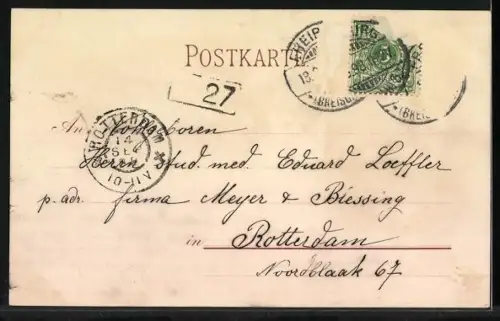 POSTKARTE
FREIBURG
(BREISGAU)
27
ROTTERDAM
14
SEP
An Hochwohlgeboren
Herrn stud. med. Eduard Loeffler
p. adr. firma Meyer & Biessing
in Rotterdam
Noordblaak 67